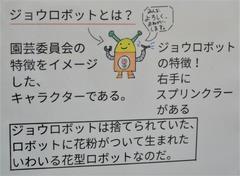 ジョウロボットとは?
みんな
よろしく
おねがい
します。
園芸委員会の
特徴をイメージ
した、
キャラクターである。
ジョウロボット
の特徴!
右手に
スプリンクラー
がある
ジョウロボットは捨てられていた、
ロボットに花粉がついて生まれた
いわいる花型ロボットなのだ。